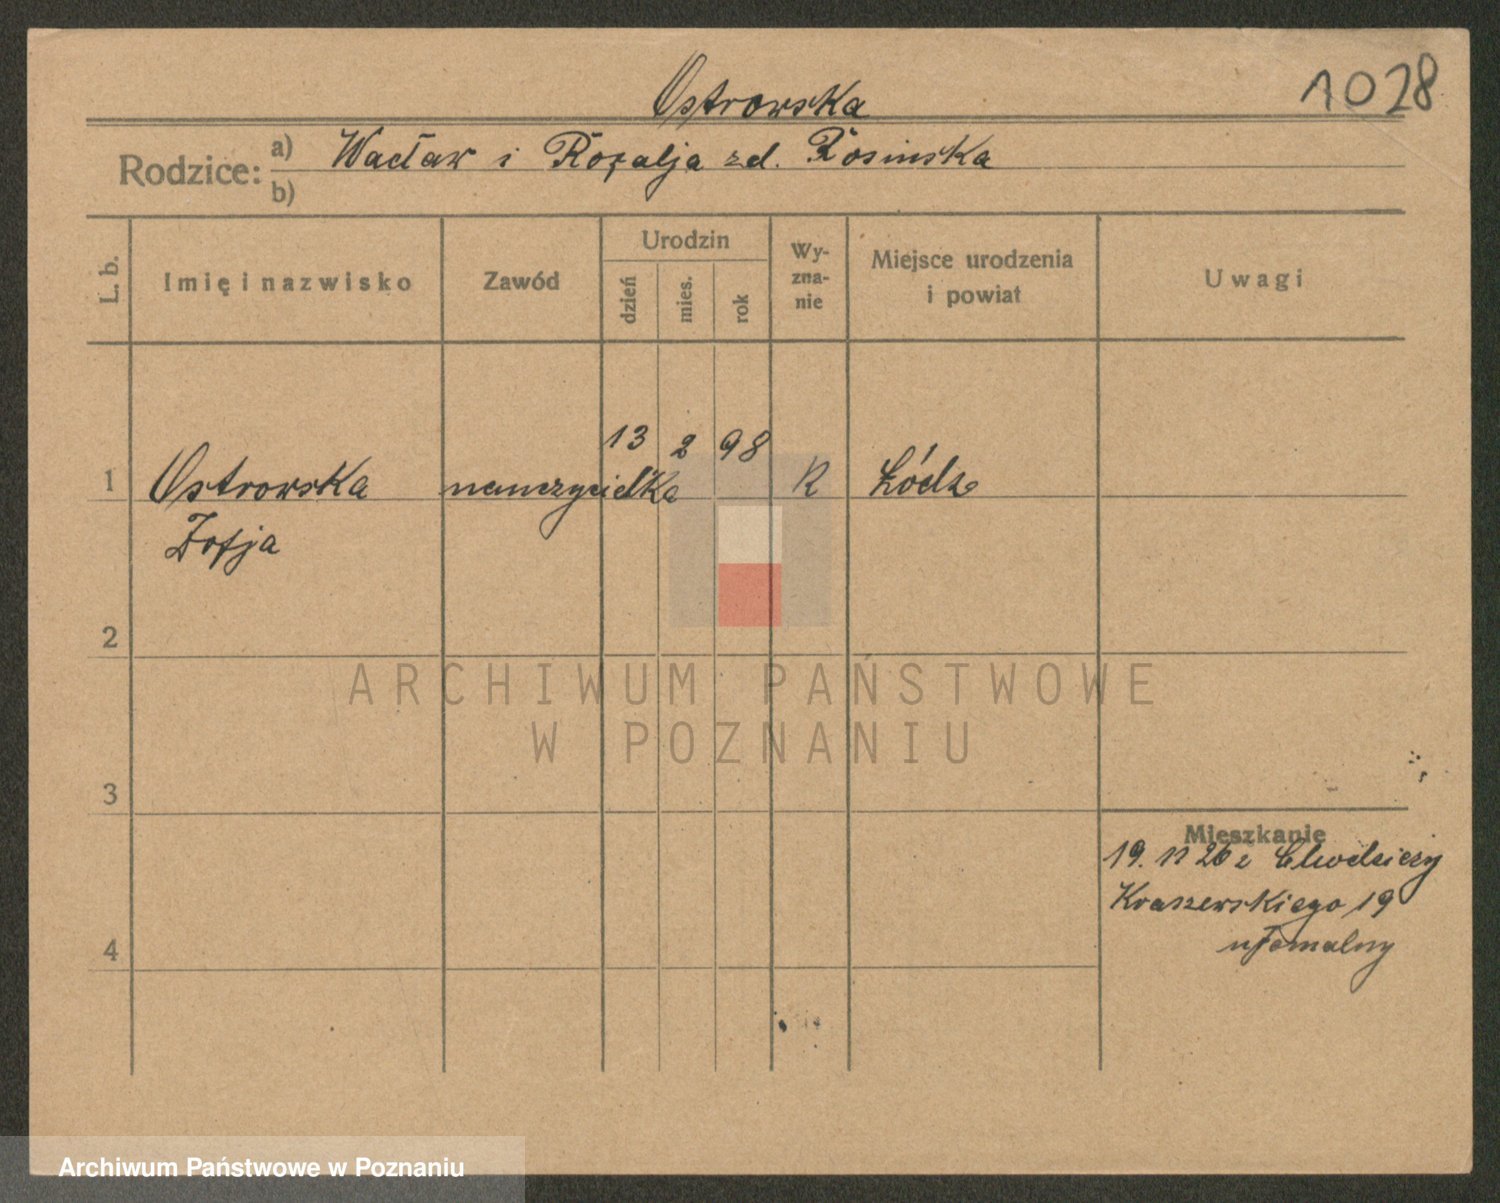 Ostrowska
1028
Rodzice:
a) Wacław i Rozalja zd. Rosinska
b)
L. b.
Imię i nazwisko
Zawód
Urodzin
dzień
mies.
rok
Wy-
zna-
nie
Miejsce urodzenia
i powiat
Uwagi
13 2 98
1 Ostrowska nauczycielka R Łódz
Zofja
2
ARCHIWUM PAŃSTWOWE
W POZNANIU
3
Mieszkanie
19. 26 z Chodzieży
Kraszewskiego 19
4
Archiwum Państwowe w Poznaniu